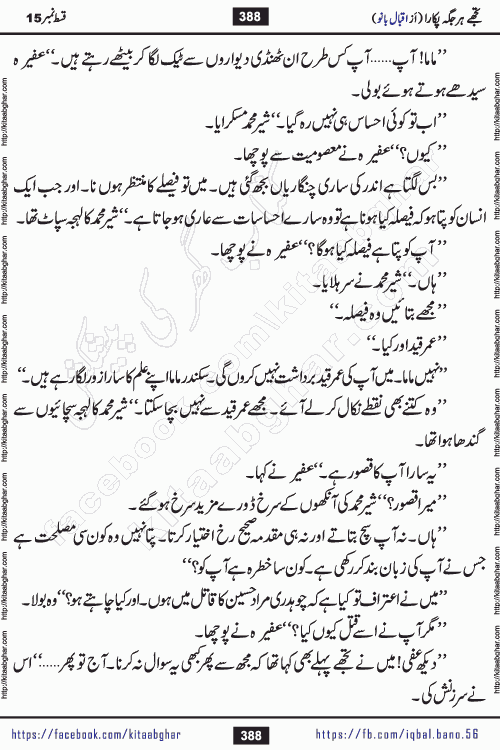 تجھے ہر جگہ پکارا (از اقبال بانو) 388 قسط نمبر 15
’’ماما! آپ......آپ کس طرح ان ٹھنڈی دیواروں سے ٹیک لگا کر بیٹھے رہتے ہیں۔‘‘ عفیر ہ
سیدھے ہوتے ہوئے بولی۔
’’اب تو کوئی احساس ہی نہیں رہ گیا۔‘‘ شیر محمد مسکرایا۔
’’کیوں؟‘‘ عفیر ہ نے معصومیت سے پوچھا۔
’’بس لگتا ہے اندر کی ساری چنگاریاں بجھ گئی ہیں۔ میں تو فیصلے کا منتظر ہوں نا۔ اور جب ایک
انسان کو پتا ہو کہ فیصلہ کیا ہونا ہے تو وہ سارے احساسات سے عاری ہو جاتا ہے۔‘‘ شیر محمد کا لہجہ سپاٹ تھا۔
’’آپ کو پتا ہے فیصلہ کیا ہوگا؟‘‘ عفیر ہ نے پوچھا۔
’’ہاں۔‘‘ شیر محمد نے سر ہلایا۔
’’مجھے بتائیں وہ فیصلہ۔‘‘
’’عمر قید اور کیا۔‘‘
’’نہیں ماما۔ میں آپ کی عمر قید برداشت نہیں کروں گی۔ سکندر ماما اپنے علم کا سارا زور لگا رہے ہیں۔‘‘
’’وہ کتنے بھی نقطے نکال کر لے آئے۔ مجھے عمر قید سے نہیں بچا سکتا۔‘‘ شیر محمد کا لہجہ سچائیوں سے
گندھا ہوا تھا۔
’’یہ سارا آپ کا قصور ہے۔‘‘ عفیر نے کہا۔
’’میرا قصور؟‘‘ شیر محمد کی آنکھوں کے سرخ ڈورے مزید سرخ ہو گئے۔
’’ہاں۔ نہ آپ سچ بتاتے اور نہ ہی مقدمہ صحیح رخ اختیار کرتا۔ پتا نہیں وہ کون سی مصلحت ہے
جس نے آپ کی زبان بند کر رکھی ہے۔ کون سا خطرہ ہے آپ کو؟‘‘
’’میں نے اعتراف تو کیا ہے کہ چوہدری مراد حسین کا قاتل میں ہوں۔ اور کیا چاہتے ہو؟‘‘ وہ بولا۔
’’مگر آپ نے اسے قتل کیوں کیا؟‘‘ عفیر ہ نے پوچھا۔
’’دیکھ عفی! میں نے تجھے پہلے بھی کہا تھا کہ مجھ سے پھر کبھی یہ سوال نہ کرنا۔ آج تو پھر......‘‘ اس
نے سرزنش کی۔
https://facebook.com/kitaabghar 388 https://fb.com/iqbal.bano.56
http://kitaabghar.com http://kitaabghar.com http://kitaabghar.com http://kitaabghar.com http://kitaabghar.com http://kitaabghar.com http://kitaabghar.com http://kitaabghar.com
http://kitaabghar.com http://kitaabghar.com http://kitaabghar.com http://kitaabghar.com http://kitaabghar.com http://kitaabghar.com http://kitaabghar.com http://kitaabghar.com
kitaabghar.com
facebook.com/kitaabghar